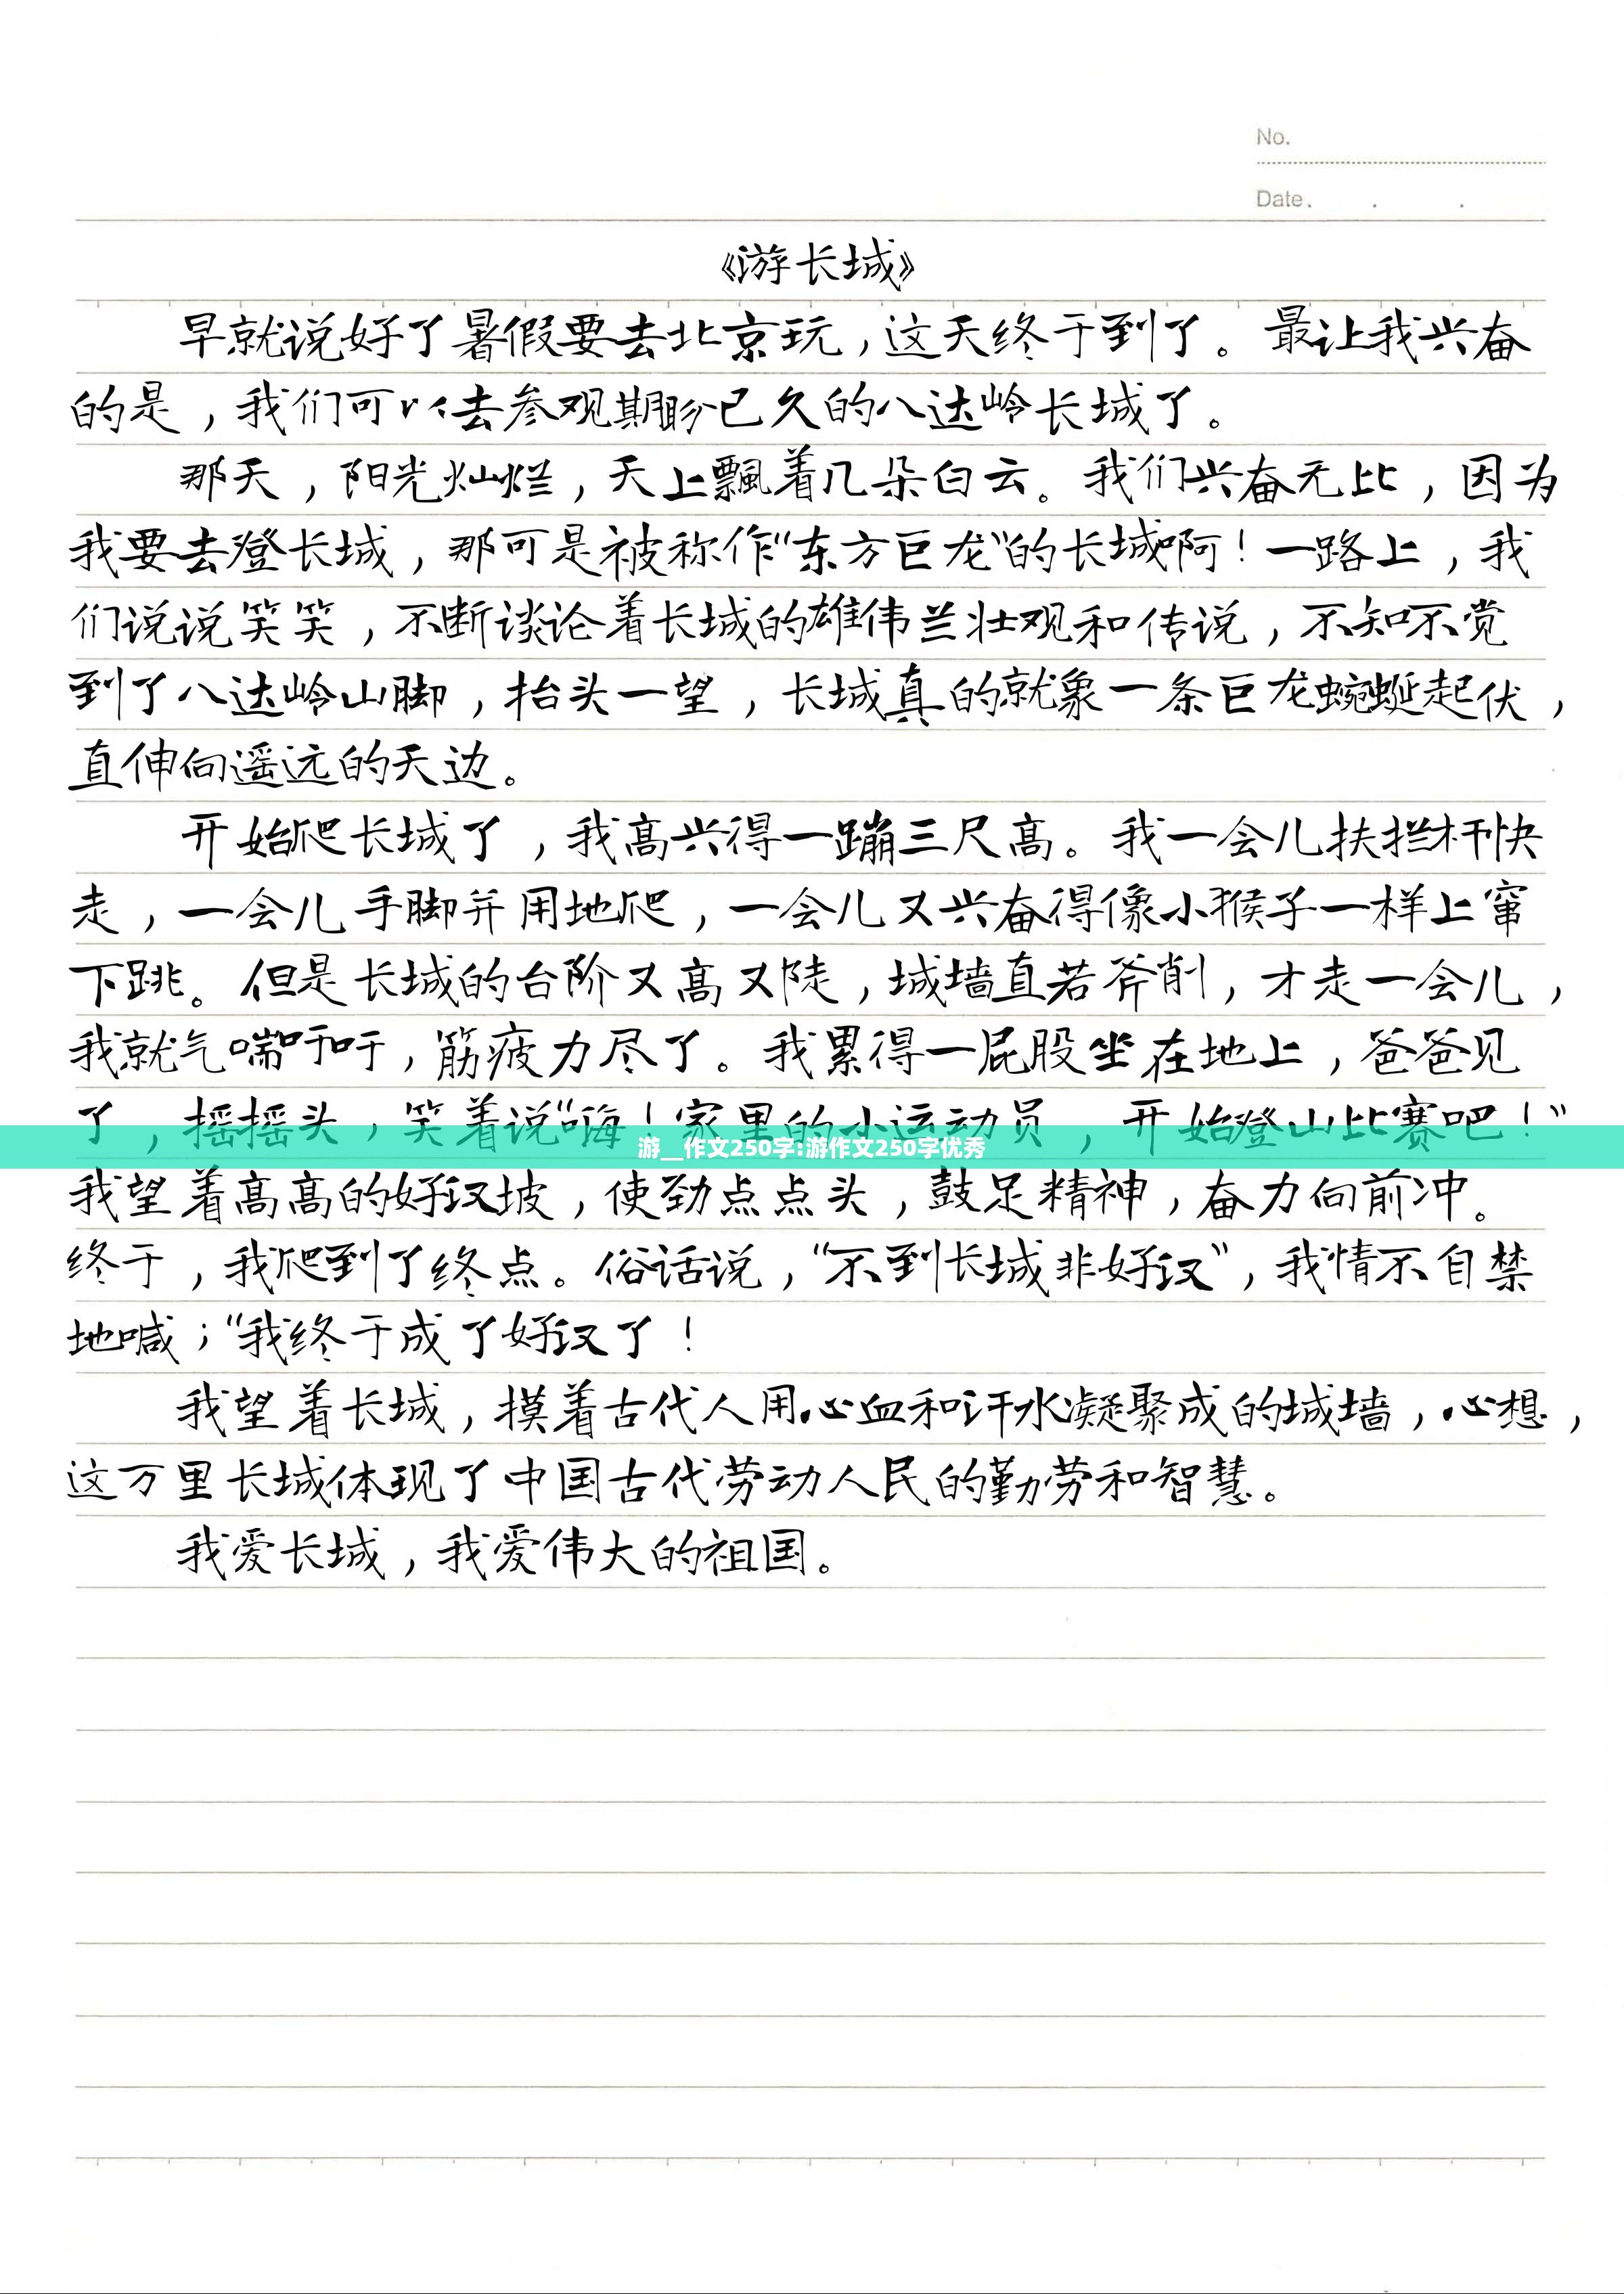 No.
Date.
《游长城》
早就说好了暑假要去北京玩，这天终于到了。最让我兴奋
的是，我们可以去参观期盼已久的八达岭长城了。
那天，阳光灿烂，天上飘着几朵白云。我们兴奋无比，因为
我要去登长城，那可是被称作“东方巨龙”的长城啊！一路上，我
们说说笑笑，不断谈论着长城的雄伟兰壮观和传说，不知不觉
到了八达岭山脚，抬头一望，长城真的就象一条巨龙蜿蜒起伏，
直伸向遥远的天边。
开始爬长城了，我高兴得一蹦三尺高。我一会儿扶拦杆快
走，一会儿手脚并用地爬，一会儿又兴奋得像小猴子一样上窜
下跳。但是长城的台阶又高又陡，城墙直若斧削，才走一会儿，
我就气喘吁吁，筋疲力尽了。我累得一屁股坐在地上，爸爸见
了，摇摇头，笑着说“嗨！家里的小运动员，开始登山比赛吧！”
游__作文250字:游作文250字优秀
我望着高高的好汉坡，使劲点点头，鼓足精神，奋力向前冲。
终于，我爬到了终点。俗话说，“不到长城非好汉”，我情不自禁
地喊；“我终于成了好汉了！
我望着长城，摸着古代人用心血和汗水凝聚成的城墙，心想，
这万里长城体现了中国古代劳动人民的勤劳和智慧。
我爱长城，我爱伟大的祖国。